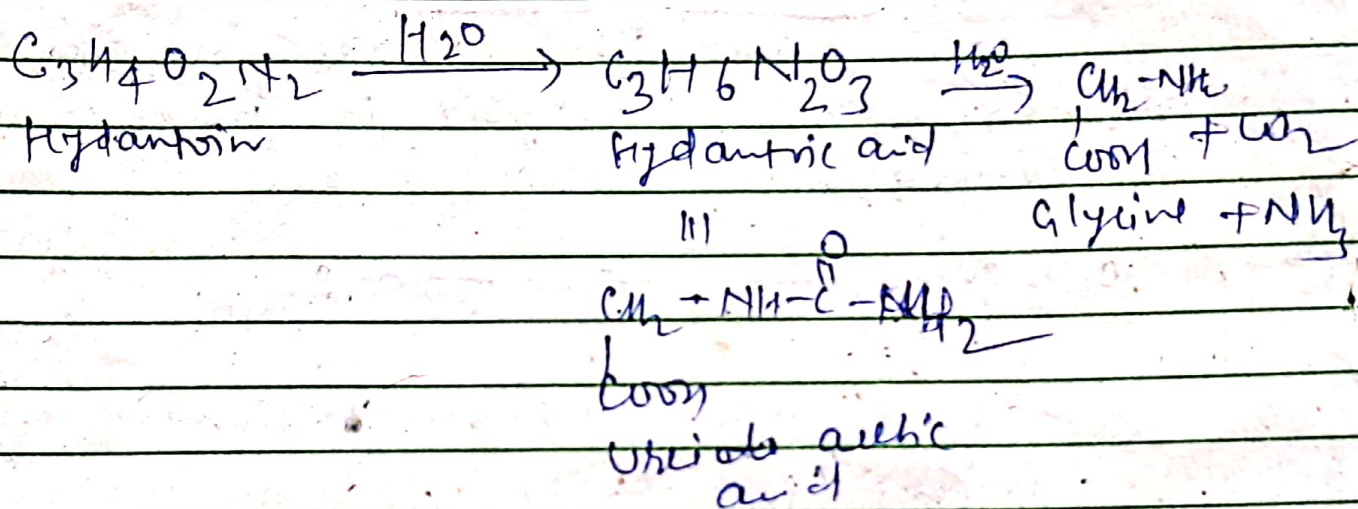 C3H4O2N2 —H2O→ C3H6N2O3 —H2O→ CH2-NH2
Hydantoin Hydantoic acid COOH + CO2
||| Glycine + NH3
O
CH2 - NH-C-NH2
COOH
acetic
acid